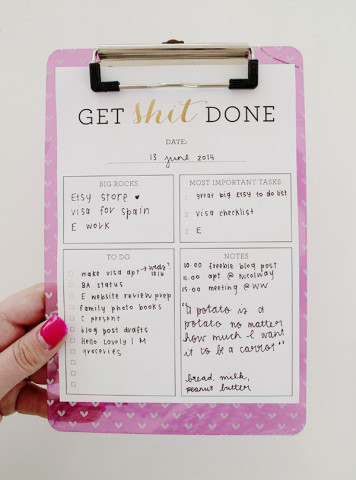 GET shit DONE
DATE:
13 june 2014
BIG ROCKS
Etsy store
visa for spain
E work
MOST IMPORTANT TASKS
1 great big Etsy to do list
2 visa checklist
3 E
TO DO
make visa apt → weds?
18/6
BA status
E website review prep
family photo books
C present
blog post drafts
Hello Lovely | M
groceries
NOTES
10.00 freebie blog post
11.00 apt @ Nicolway
15.00 meeting @ WW
"a potato is a
potato no matter
how much I want
it to be a carrot"
bread, milk,
peanut butter